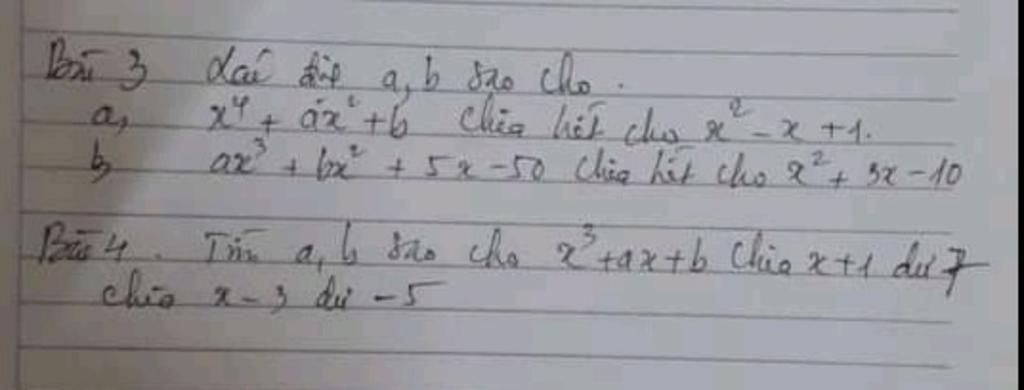 Bài 3 Xác định a, b sao cho.
a, x⁴ + ax² + b chia hết cho x² - x + 1.
b, ax³ + bx² + 5x - 50 chia hết cho x² + 3x - 10
Bài 4. Tìm a, b sao cho x³ + ax + b chia x + 1 dư 7
chia x - 3 dư -5